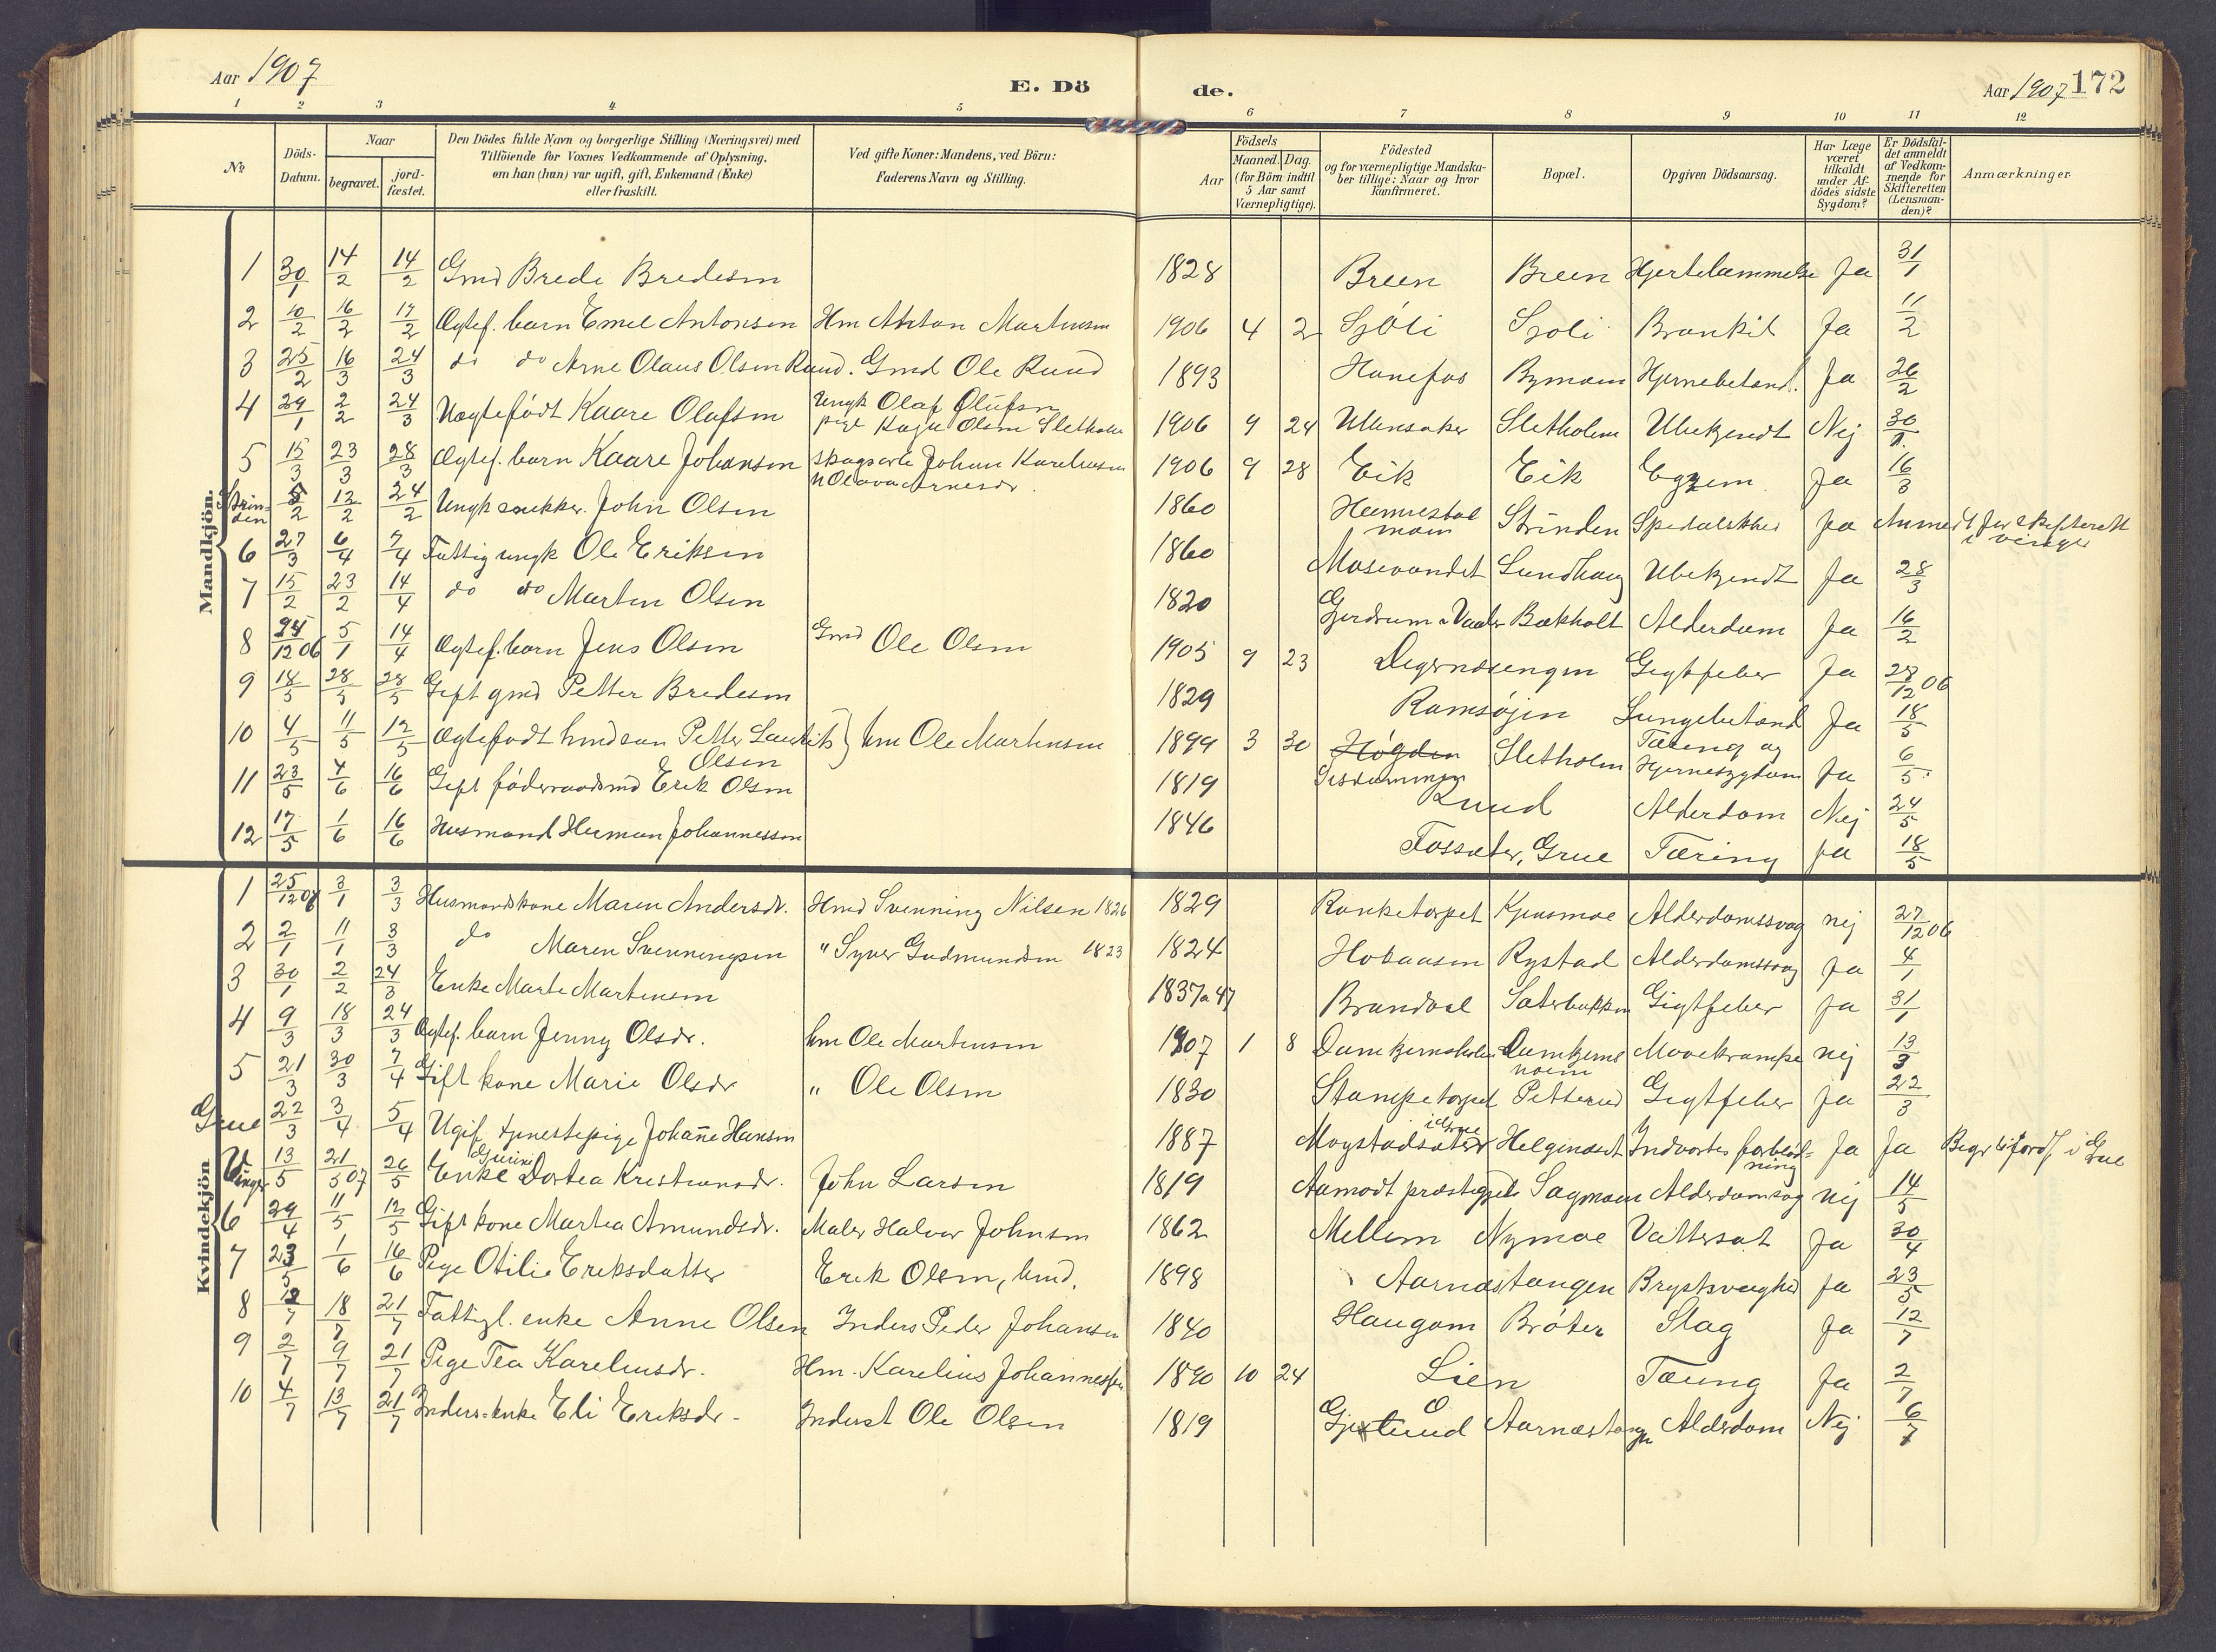 Aar 1907
E. Dö de.
Aar 1907 172
1 2 3 4 5 6 7 8 9 10 11 12
No
Döds-Datum.
Naar
begravet.
jord-fæstet.
Den Dödes fulde Navn og borgerlige Stilling (Næringsvei) med
Tilföiende for Voxnes Vedkommende af Oplysning,
om han (hun) var ugift, gift, Enkemand (Enke)
eller fraskilt.
Ved gifte Koner: Mandens, ved Börn:
Faderens Navn og Stilling.
Födsels
Aar
Maaned. Dag.
(for Börn indtil
5 Aar samt
Værnepligtige).
Födested
og for værnepligtige Mandska-
ber tillige: Naar og hvor
kanfirmeret.
Bopæl.
Opgiven Dödsaarsag.
Har Læge
været
tilkaldt
under Af-
dödes sidste
Sygdom?
Er Dödsfal-
det anmeldt
af Vedkom-
mende for
Skifteretten
(Lensman-
den)?
Anmærkninger
Mandkjön.
1 30/1 14/2 14/2 Gmd Brede Bredesen 1828 Breen Breen Hjertelammelse Ja 31/1
2 10/2 16/2 17/2 Ægtef. barn Emil Antonsen Hm Anton Martinsen 1906 4 2 Sjøli Sjoli Bronkit Ja 11/2
3 25/2 16/3 24/3 do do Arne Olaus Olsen Ruud. Gmd Ole Ruud 1893 Hønefos Bymoen Hjernebetænd. Ja 26/2
4 29/1 2/2 24/3 Uægtefødt Kaare Olafsen Ungk Olaf Olufsen
pige Kaja Olsen Sletholen 1906 9 24 Ullensaker Sletholen Ubekjendt Nej 30/1
5 15/3 23/3 28/3 Ægtef. barn Kaare Johansen Skogsarb Johan Kareliussen
Olava Arnesdr. 1906 9 28 Eik Eik Egzem Ja 16/3
Strin-
den 5/2 12/2 24/2 Ungk snekker. John Olsen 1860 Strinden Spedalskhed ja Anmeldt for skifteret
6 27/3 6/4 7/4 Fattig ungk Ole Eriksen 1860 Mosevandet Lundhaug Ubekjendt Ja 28/3
7 15/2 23/2 14/4 do do Martin Olsen 1820 Gjerdrum Bækholt Alderdom Ja 16/2
8 25/12 06 5/1 14/4 Ægtef. barn Jens Olsen Gmd Ole Olsen 1905 9 23 Digernæsengen Gigtfeber Ja 28/12 06
9 18/5 28/5 28/5 Gift gmd Petter Bredesen 1829 Ramsøjen Lungebetænd Ja 18/5
10 4/5 11/5 12/5 Ægtefødt Petter Laurits
Olsen } hm Ole Martinsen 1899 3 30 Høgden Sletholen Tæring og
Hjernesygdom Ja 6/5
11 23/5 4/6 16/6 Gift føderaadsmd Erik Olsen 1819 Ruud Alderdom Nej 24/5
12 17/5 1/6 16/6 Husmand Herman Johannessen 1846 Fossæter, Grue Tæring Ja 18/5
Kvindekjön
1 25/12 06 3/1 3/3 Husmandskone Maren Andersdr. Hmd Svenning Nilsen 1826 1829 Ranketorpet Kjensmoe Alderdomssvag nej 27/12 06
2 2/1 11/1 3/3 do Maren Svenningsen " Syver Gudmundsen 1823 1824 Hobaasen Rystad Alderdomssvag Ja 4/1
3 30/1 2/2 24/3 Enke Marte Martinsen 1837 a 47 Brandval Sæterbakken Gigtfeber Ja 31/1
4 9/3 18/3 24/3 Ægtef. barn Jenny Olsdr. hm Ole Martinsen 1907 1 8 Mavekrampe nej 13/3
5 21/3 30/3 7/4 Gift kone Marie Olsdr " Ole Olsen 1830 Stampetorpet Petterud Gigtfeber Ja 22/3
Grue 22/3 3/4 5/4 Ugif. tjenestepige Johanne Hansen 1887 Moystadsæter i Grue Helgenæset Indvortes forblød-
ning Ja Ja Begr. & jordf. i Grue
Vinger 13/5 21/5 07 26/5 Enke Gurine Dortea Kristiansdr. John Larsen 1819 Aamodt præstegjeld Sagmoen Alderdomssvag nej 14/5
6 29/4 11/5 12/5 Gift kone Martea Amundsdr. Maler Halvor Johnsen 1862 Mellem Nymoe Vattersot Ja 30/4
7 23/5 1/6 16/6 Pige Otilie Eriksdatter Erik Olsen, hmd. 1898 Aarnæstangen Brystsvaghed Ja 23/5
8 12/7 18/7 21/7 Fattigl. enke Anne Olsen Inders Peder Johansen 1840 Haugom Bråten Slag Ja 12/7
9 2/7 9/7 21/7 Pige Tea Kareliusdr. Hm. Karelius Johannessen 1890 10 24 Lien Tæring Ja 2/7
10 4/7 13/7 21/7 Inders-enke Eli Eriksdr. Inderst Ole Olsen 1819 Aarnæstangen Alderdom Nej 6/7